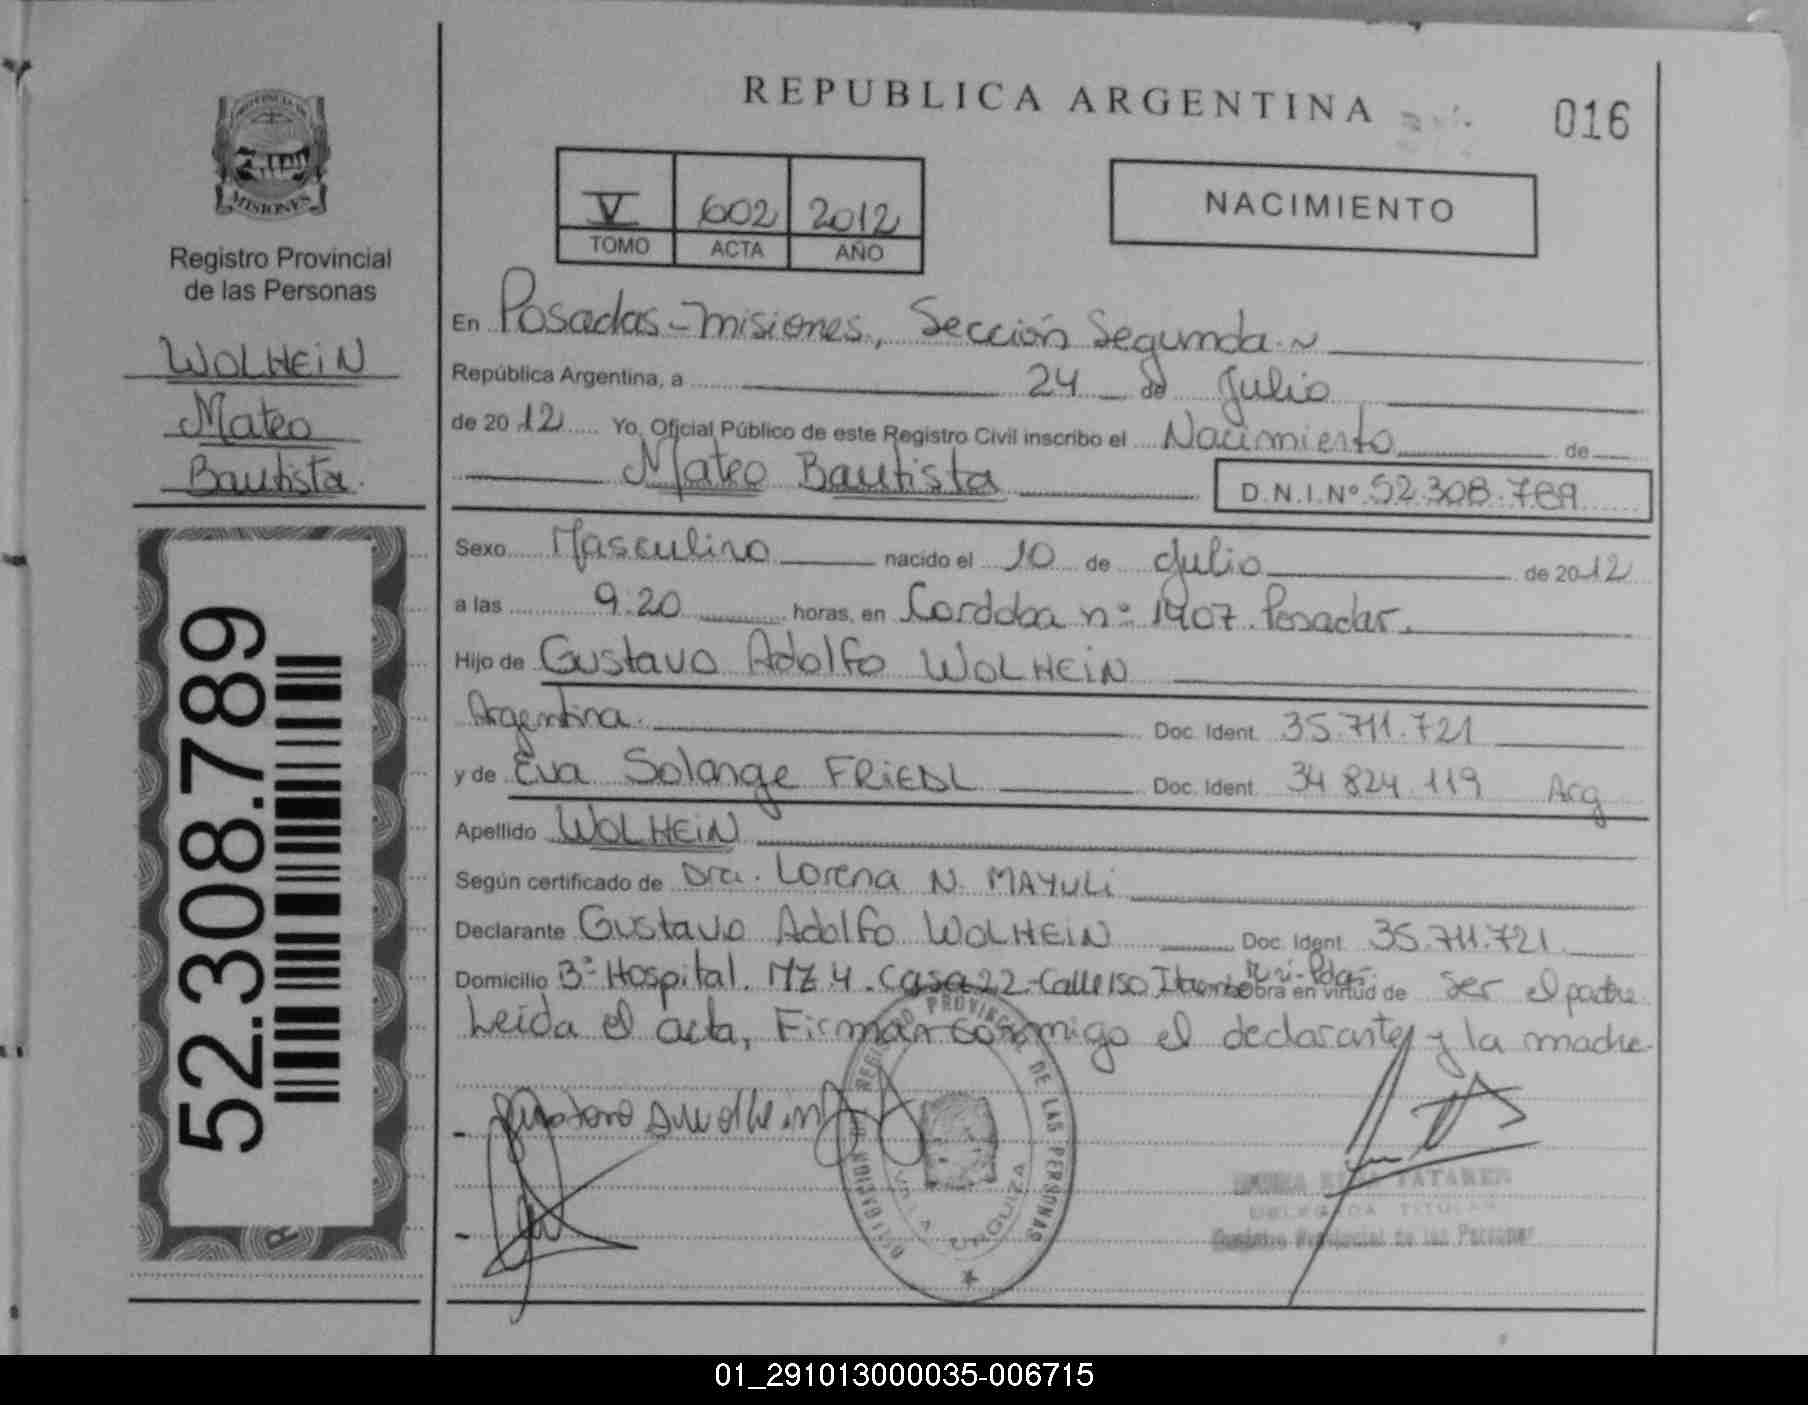 REPUBLICA ARGENTINA
016
PROVINCIA DE
MISIONES
Registro Provincial
de las Personas
WOLHEIN
Mateo
Bautista.
52.308.789
V 602 2012
TOMO ACTA AÑO
NACIMIENTO
En Posadas-misiones, Sección Segunda.~
República Argentina, a 24 de Julio
de 2012 Yo, Oficial Público de este Registro Civil inscribo el Nacimiento de
Mateo Bautista D.N.I.Nº 52.308.789
Sexo Masculino nacido el 10 de Julio de 2012
a las 9:20 horas, en Cordoba nº 1907. Posadas.
Hijo de Gustavo Adolfo WOLHEIN
Argentina. Doc. Ident. 35.711.721
y de Eva Solange FRIEDL Doc. Ident. 34 824.119 Arg
Apellido WOLHEIN
Según certificado de Dra. Lorena N. MAYULI
Declarante Gustavo Adolfo WOLHEIN Doc. Ident. 35.711.721
Domicilio Bº Hospital. MZ.4. Casa 22-Calle 150 obra en virtud de ser el padre.
Leida el acta, Firman conmigo el declarante y la madre.
REGISTRO PROVINCIAL DE LAS PERSONAS
DELEGACION
VILLA URQUIZA
DELEGADA TITULAR
Registro Provincial de las Personas
01_291013000035-006715